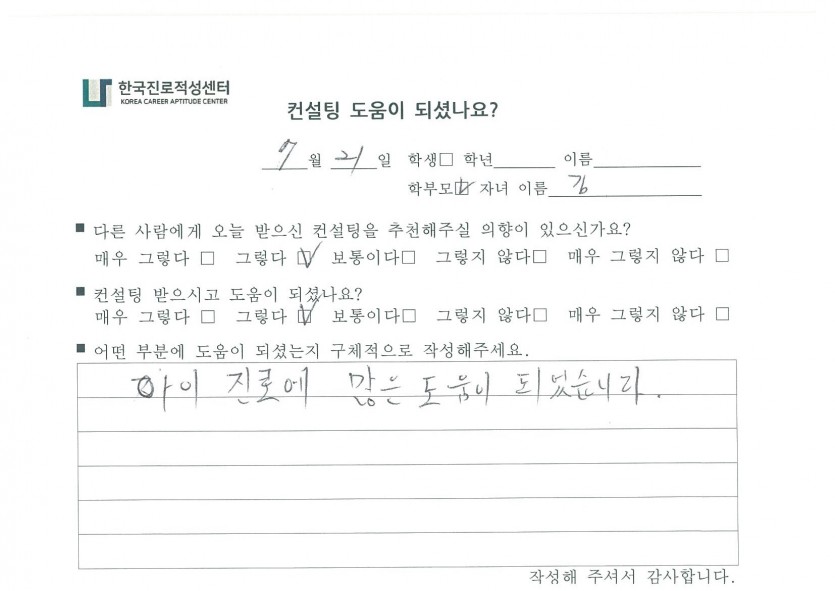 한국진로적성센터
KOREA CAREER APTITUDE CENTER
컨설팅 도움이 되셨나요?
7월 21일 학생□ 학년 이름
학부모☑ 자녀 이름 김
■ 다른 사람에게 오늘 받으신 컨설팅을 추천해주실 의향이 있으신가요?
매우 그렇다 □ 그렇다 ☑ 보통이다□ 그렇지 않다□ 매우 그렇지 않다 □
■ 컨설팅 받으시고 도움이 되셨나요?
매우 그렇다 □ 그렇다 ☑ 보통이다□ 그렇지 않다□ 매우 그렇지 않다 □
■ 어떤 부분에 도움이 되셨는지 구체적으로 작성해주세요.
아이 진로에 많은 도움이 되었습니다.
작성해 주셔서 감사합니다.